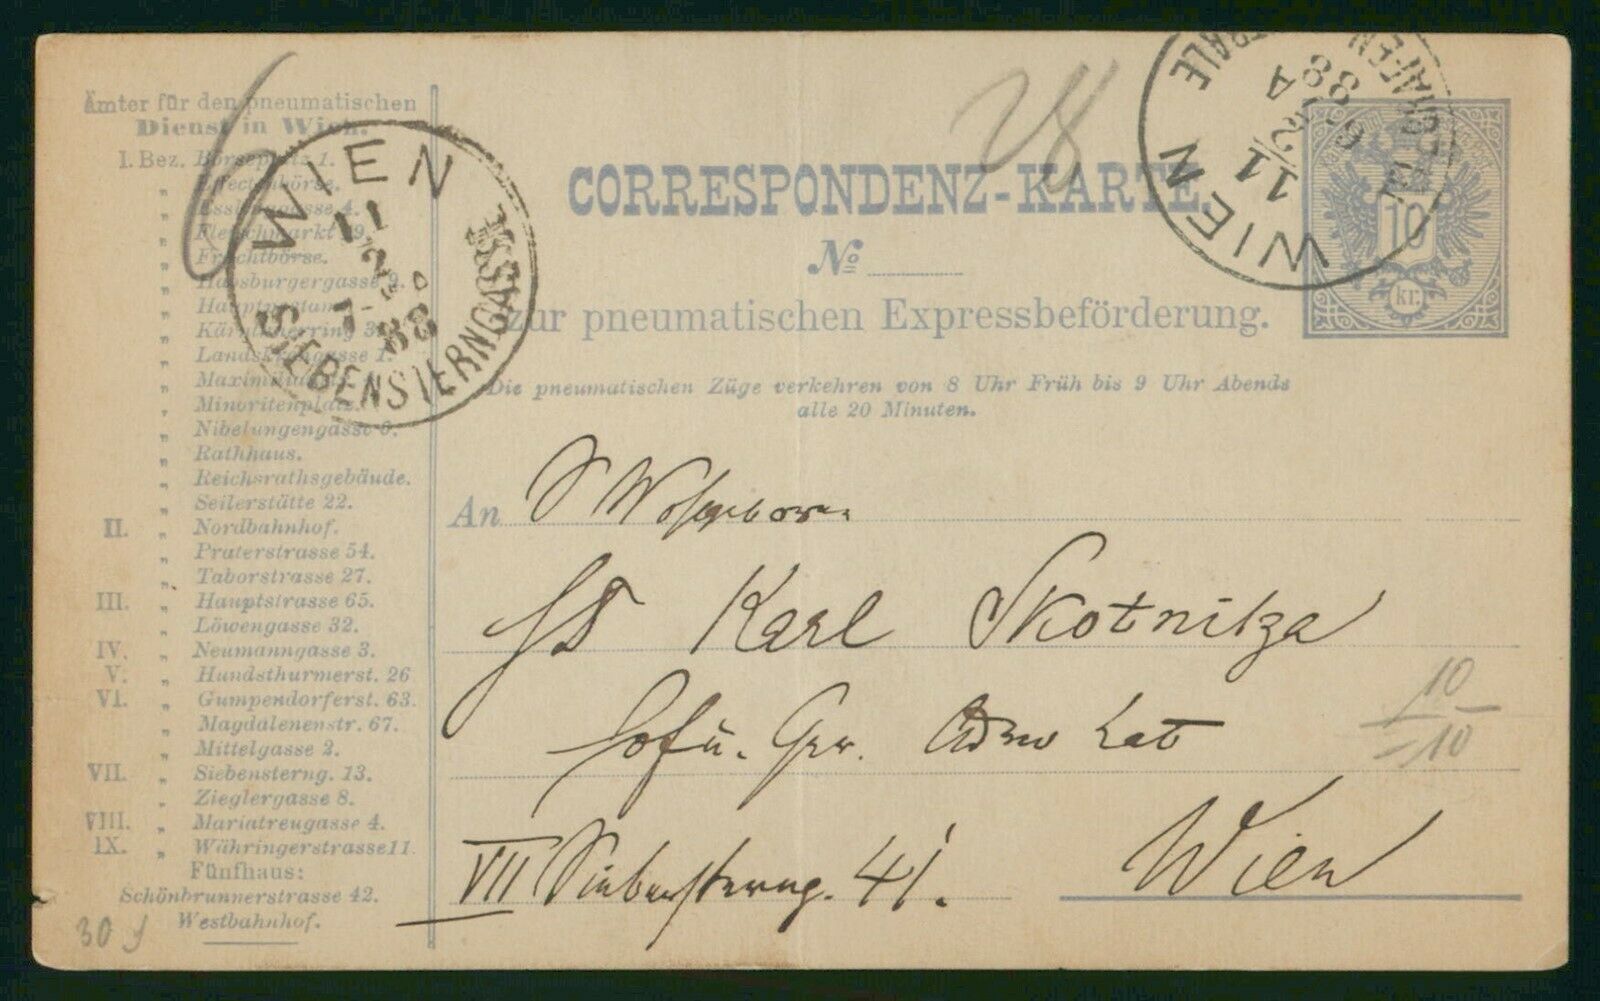 Ämter für den pneumatischen
Dienst in Wien.
I. Bez. Börseplatz 1.
„ Effectenbörse.
„ Essiggasse 4.
„ Fleischmarkt 19.
„ Fruchtbörse.
„ Habsburgergasse 9.
„ Hauptpostamt
„ Kärntnerring 3.
„ Landskrongasse 1.
„ Maximilianstr.
„ Minoritenplatz.
„ Nibelungengasse 6.
„ Rathhaus.
„ Reichsrathsgebäude.
„ Seilerstätte 22.
II. „ Nordbahnhof.
„ Praterstrasse 54.
„ Taborstrasse 27.
III. „ Hauptstrasse 65.
„ Löwengasse 32.
IV. „ Neumanngasse 3.
V. „ Hundsthurmerst. 26
VI. „ Gumpendorferst. 63.
„ Magdalenenstr. 67.
„ Mittelgasse 2.
VII. „ Siebensterng. 13.
„ Zieglergasse 8.
VIII. „ Mariatreugasse 4.
IX. „ Währingerstrasse 11.
Fünfhaus:
Schönbrunnerstrasse 42.
Westbahnhof.
30
6
WIEN
11
2
7 88
SIEBENSTERNGASSE
28
CORRESPONDENZ-KARTE.
Nº
Zur pneumatischen Expressbeförderung.
Die pneumatischen Züge verkehren von 8 Uhr Früh bis 9 Uhr Abends
alle 20 Minuten.
WIEN
11/2
88
10
kr.
An S Wohlgeboren
Karl Skotnitza
Hof u. Ger. Advokat
VII Siebensterng. 41.
Wien
10
10